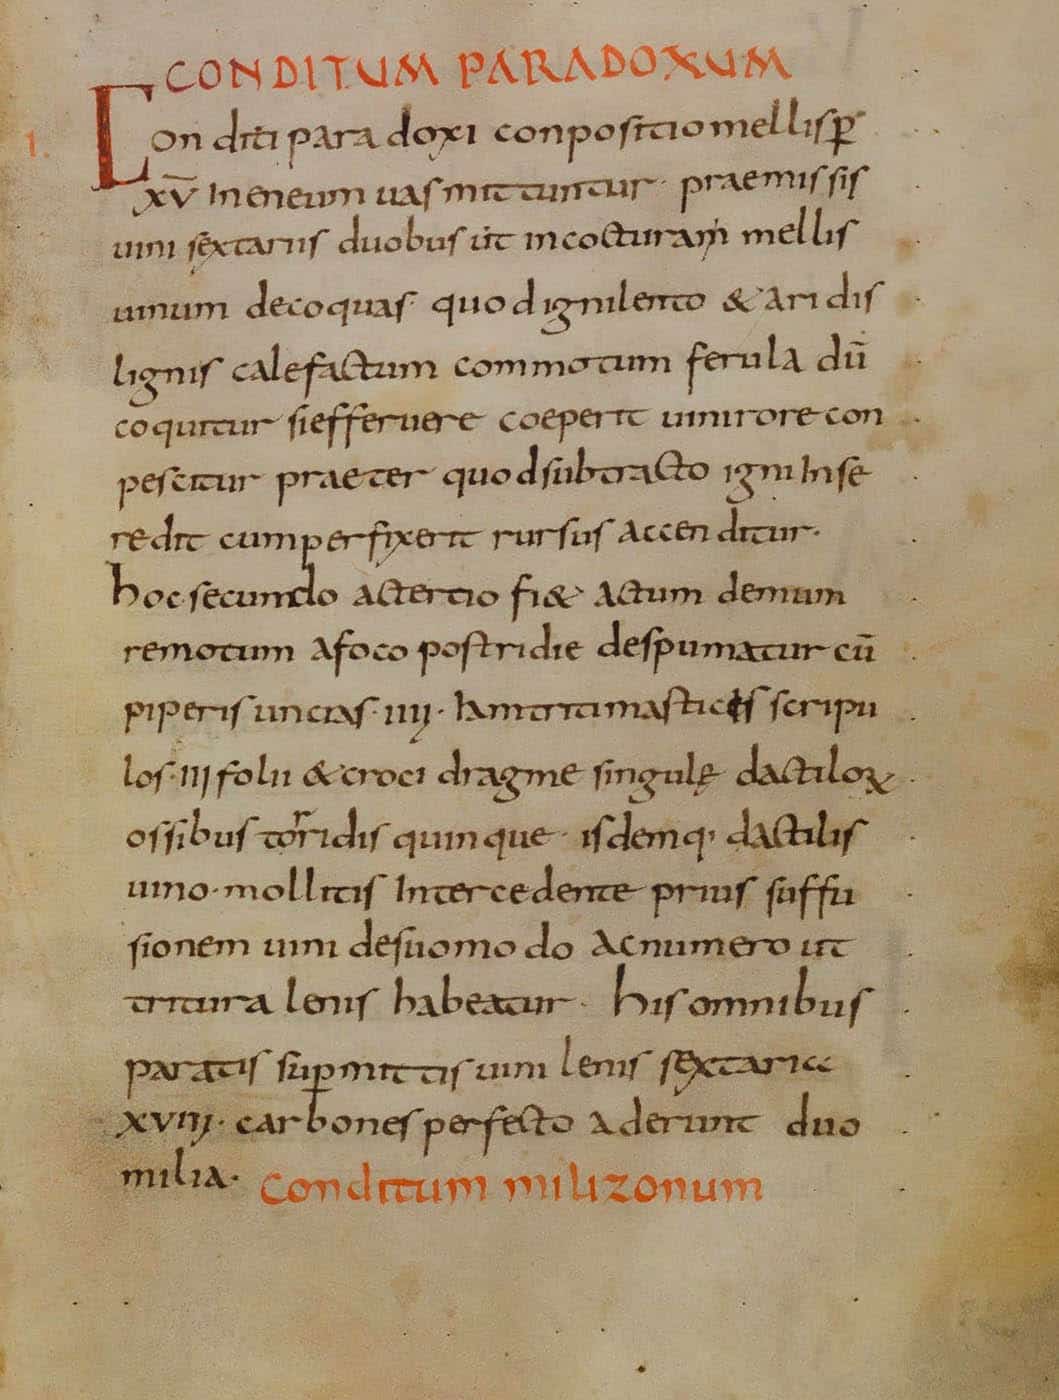 CONDITUM PARADOXUM
1. Conditi paradoxi conpositio mellis p̄
xv̄ In eneum uas mittuntur· praemissis
uini sextariis duobus ut in cocturam mellis
uinum decoquas· quod igni lento & aridis
lignis calefactum commotum ferula dū
coquitur si efferuere coeperit uini rore con
pescitur praeter quod subtracto igni In se
redit cum perfixerit rursus accenditur·
hoc secundo ac tertio fi& actum demum
remotum a foco postridie despumatur cū
piperis uncias· iiij· Iam triti masticis scripu
los· iij folii & croci dragme singulę dactiloꝝ
ossibus torridis quinque· isdemq; dactilis
uino· mollitis Intercedente prius suffu
sionem uini de suo modo ac numero ut
tritura lenis habeatur· his omnibus
paratis suꝑ mittis uini lenis sextaria
xviij· carbones perfecto aderunt duo
milia· Conditum milizonum